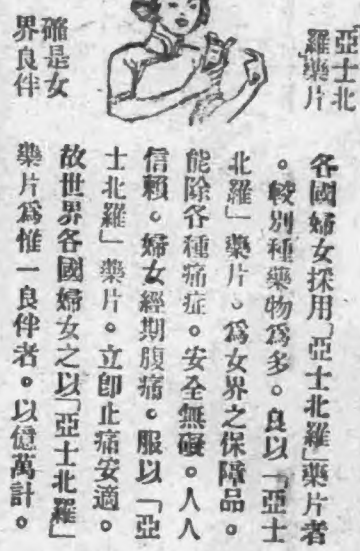 亞士北
羅藥片
確是女
界良伴
各國婦女採用「亞士北羅」藥片者
。較別種藥物爲多。良以「亞士
北羅」藥片。爲女界之保障品。
能除各種痛症。安全無礙。人人
信賴。婦女經期腹痛。服以「亞
士北羅」藥片。立卽止痛安適。
故世界各國婦女之以「亞士北羅」
藥片爲惟一良伴者。以億萬計。